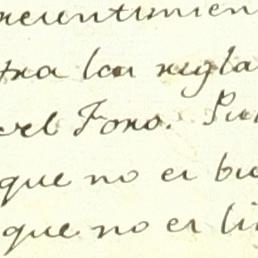 recintimien
tra las regla
del Foro. Pu
que no es bu
que no es li